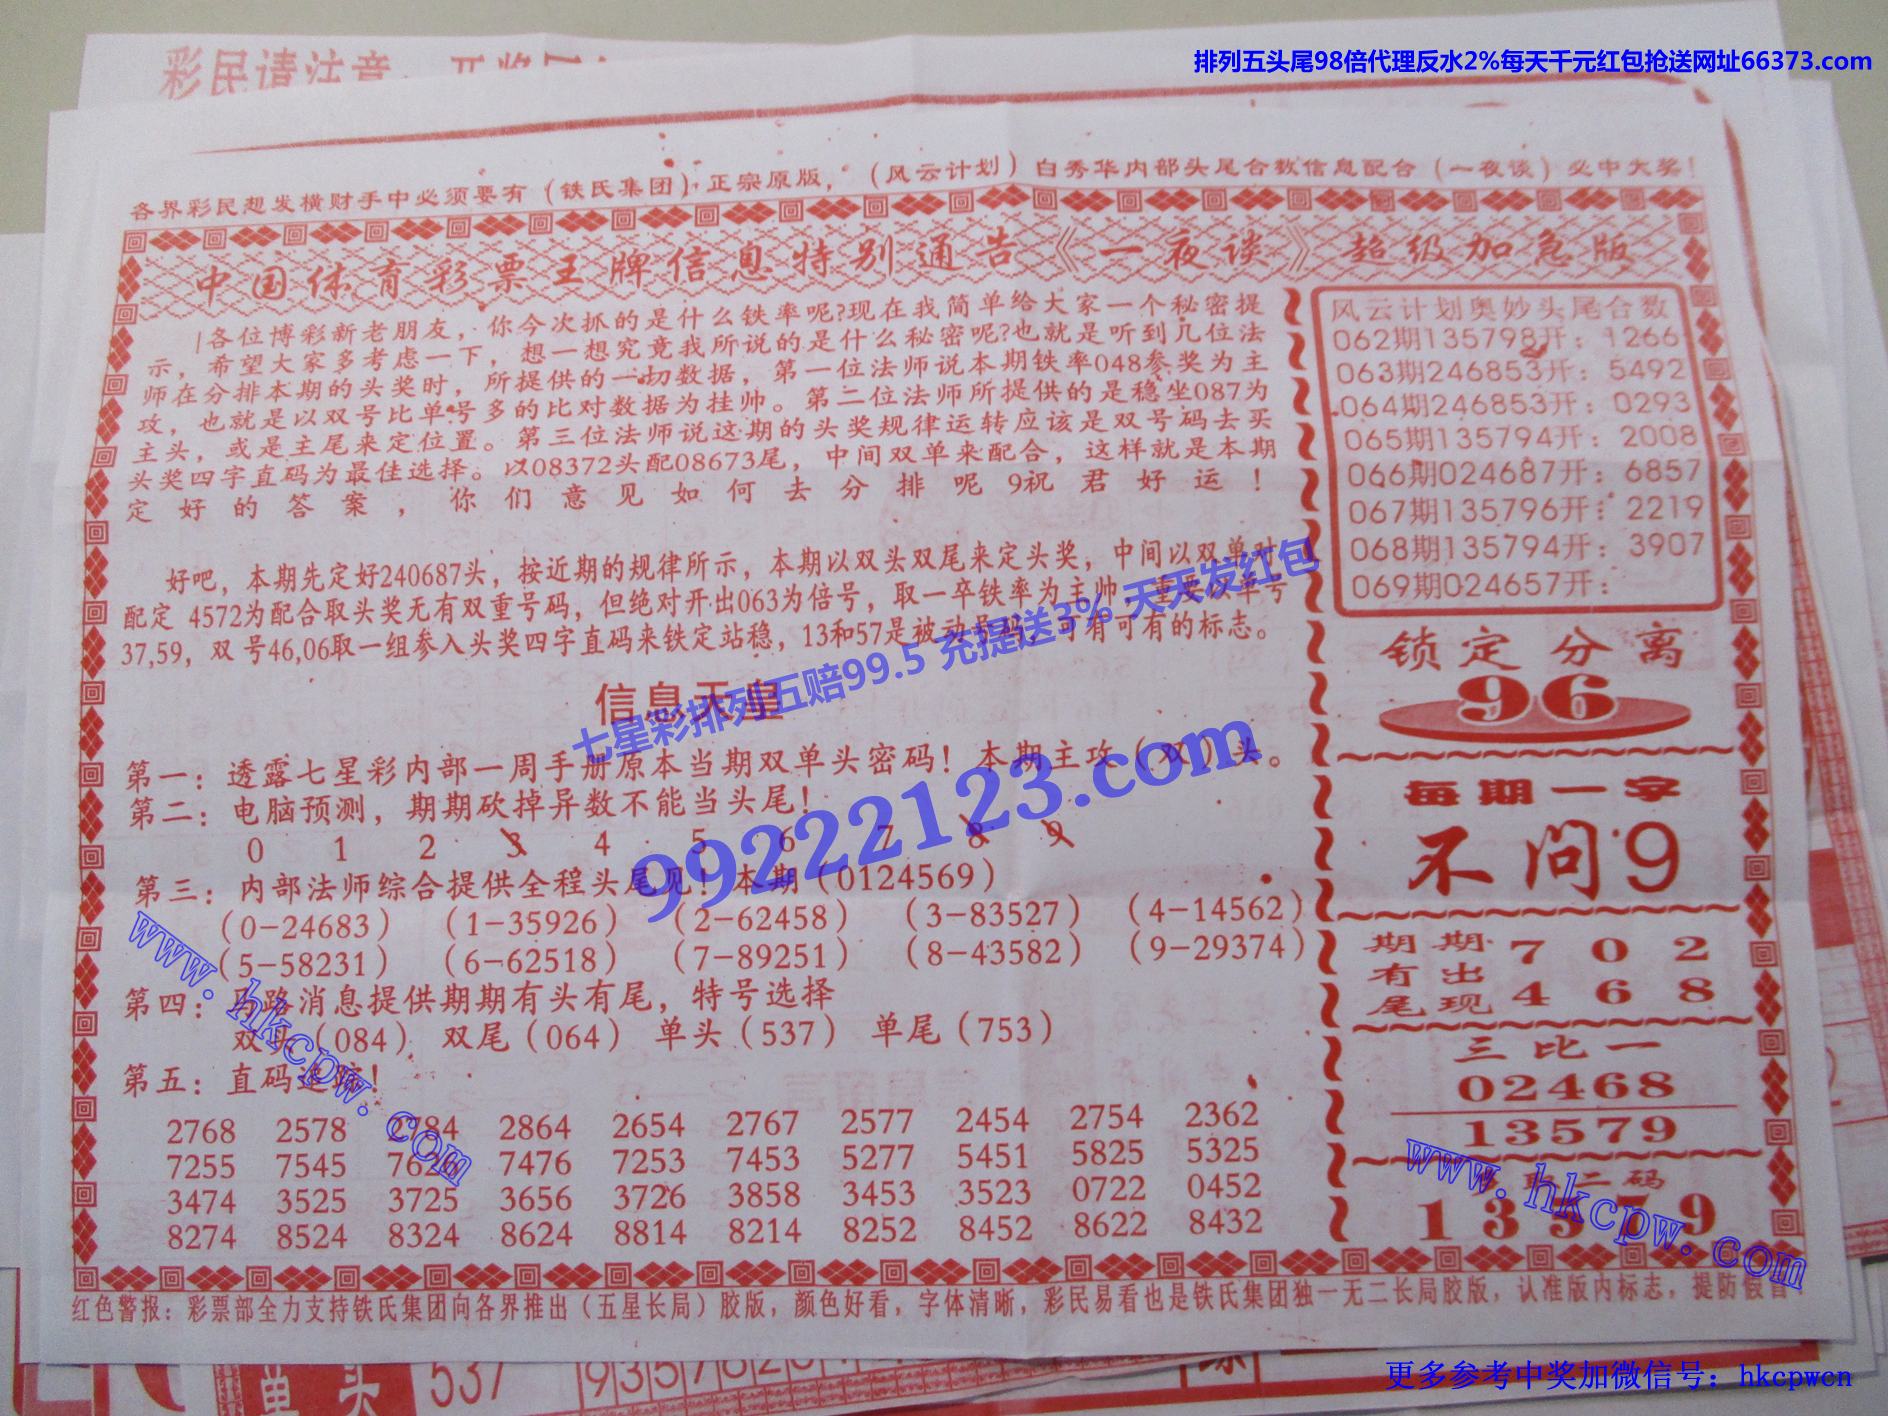 排列五头尾98倍代理反水2%每天千元红包抢送网址66373.com
彩民请注意
各界彩民想发横财手中必须要有（铁氏集团）正宗原版，（风云计划）白秀华内部头尾合数信息配合（一夜谈）必中大奖！
中国体育彩票王牌信息特别通告《一夜谈》超级加急版
各位博彩新老朋友，你今次抓的是什么铁率呢?现在我简单给大家一个秘密提
示，希望大家多考虑一下，想一想究竟我所说的是什么秘密呢?也就是听到几位法
师在分排本期的头奖时，所提供的一切数据，第一位法师说本期铁率048参奖为主
攻，也就是以双号比单号多的比对数据为挂帅。第二位法师所提供的是稳坐087为
主头，或是主尾来定位置。第三位法师说这期的头奖规律运转应该是双号码去买
头奖四字直码为最佳选择。以08372头配08673尾，中间双单来配合，这样就是本期
定好的答案，你们意见如何去分排呢9祝君好运！
好吧，本期先定好240687头，按近期的规律所示，本期以双头双尾来定头奖，中间以双单对
配定 4572为配合取头奖无有双重号码，但绝对开出063为倍号，取一卒铁率为主帅，重要以单号
37,59，双号46,06取一组参入头奖四字直码来铁定站稳，13和57是被动号码，可有可有的标志。
信息天皇
七星彩排列五赔99.5 充提送3% 天天发红包
99222123.com
第一：透露七星彩内部一周手册原本当期双单头密码！本期主攻（双）头。
第二：电脑预测，期期砍掉异数不能当头尾！
0 1 2 3 4 5 6 7 8 9
第三：内部法师综合提供全程头尾见！本期（0124569）
（0-24683） （1-35926） （2-62458） （3-83527） （4-14562）
（5-58231） （6-62518） （7-89251） （8-43582） （9-29374）
第四：马路消息提供期期有头有尾，特号选择
双头（084） 双尾（064） 单头（537） 单尾（753）
第五：直码追踪！
2768 2578 2784 2864 2654 2767 2577 2454 2754 2362
7255 7545 7626 7476 7253 7453 5277 5451 5825 5325
3474 3525 3725 3656 3726 3858 3453 3523 0722 0452
8274 8524 8324 8624 8814 8214 8252 8452 8622 8432
风云计划奥妙头尾合数
062期135798开：1266
063期246853开：5492
064期246853开：0293
065期135794开：2008
066期024687开：6857
067期135796开：2219
068期135794开：3907
069期024657开：
锁定分离
96
每期一字
不问9
期期 7 0 2
有出
尾现 4 6 8
三比一
02468
13579
二码
13579
www.hkcpw.com
www.hkcpw.com
红色警报：彩票部全力支持铁氏集团向各界推出（五星长局）胶版，颜色好看，字体清晰，彩民易看也是铁氏集团独一无二长局胶版，认准版内标志，提防假冒！
单头 537
更多参考中奖加微信号：hkcpwcn